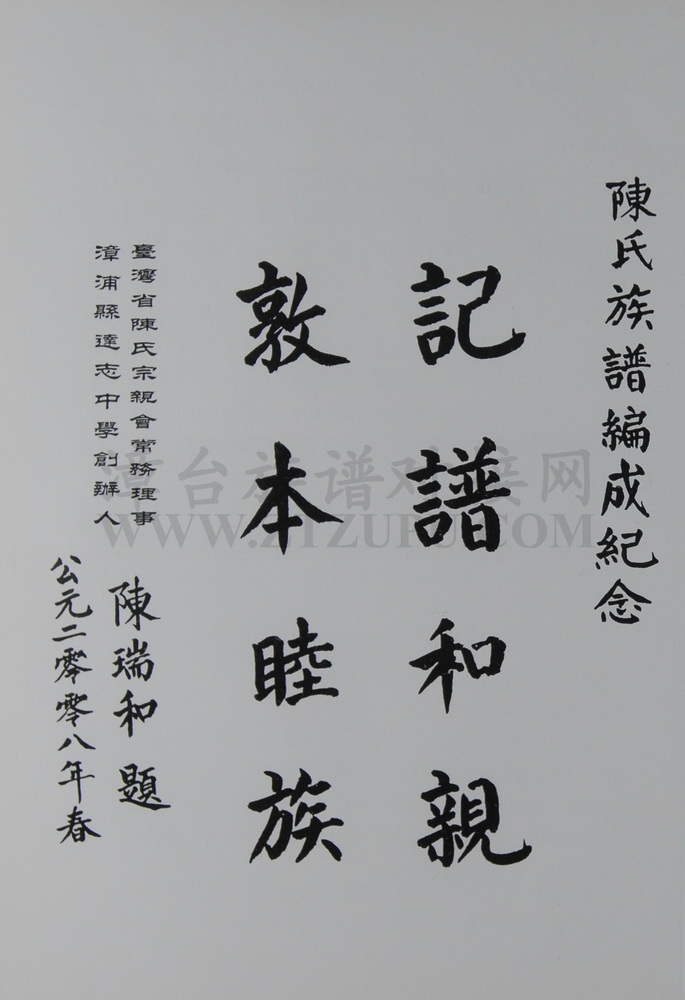 陳氏族譜編成紀念
記譜和親
敦本睦族
臺灣省陳氏宗親會常務理事
漳浦縣達志中學創辦人
陳瑞和題
公元二零零八年春
漳台族谱对接网
WWW.ZTZUPU.COM